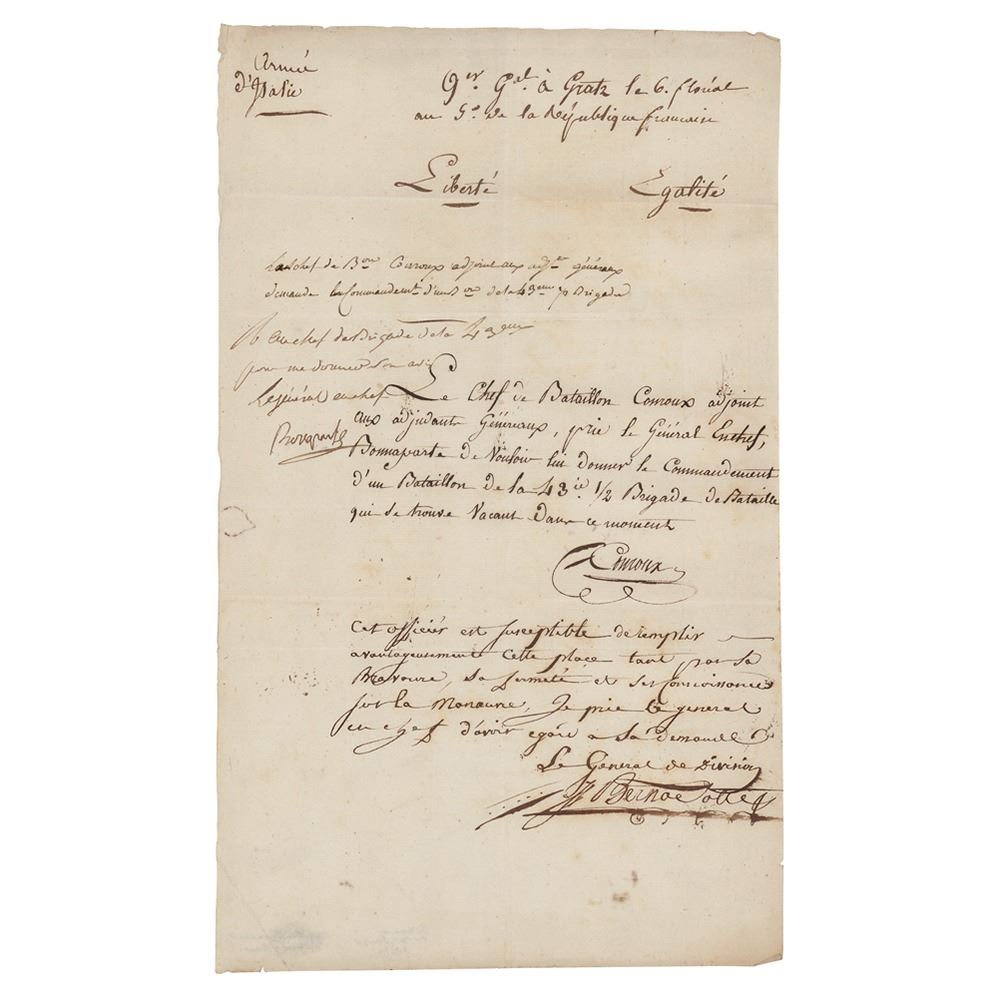 Armée
d'Italie
Qer. Gal. à Gratz le 6. floréal
au 5e. de la République francaise
Liberté Egalité
Le chef de Bon Conroux adjoint aux adjts généraux
demande le Commandement d'un Bon de la 43eme ½ Brigade
au chef de Brigade de la 43eme
pour me donner son avis
le général en chef
Bonaparte
Le Chef de Bataillon Conroux adjoint
aux adjudants Généreaux, prie le Général Enchef,
Bonnaparte de Vouloir lui donner le Commandement
d'un Bataillon de la 43ie. 1/2 Brigade de Bataille
qui se trouve Vacant dans ce moment
Conroux
Cet officiér est susceptible de remplir
avantageusement cette place tant par sa
Bravoure, sa fermeté et ses connoissances
sur la Manœuvre, Je prie le general
en chef d'avoir egard a sa demande
Le General de Division
J Bernadotte